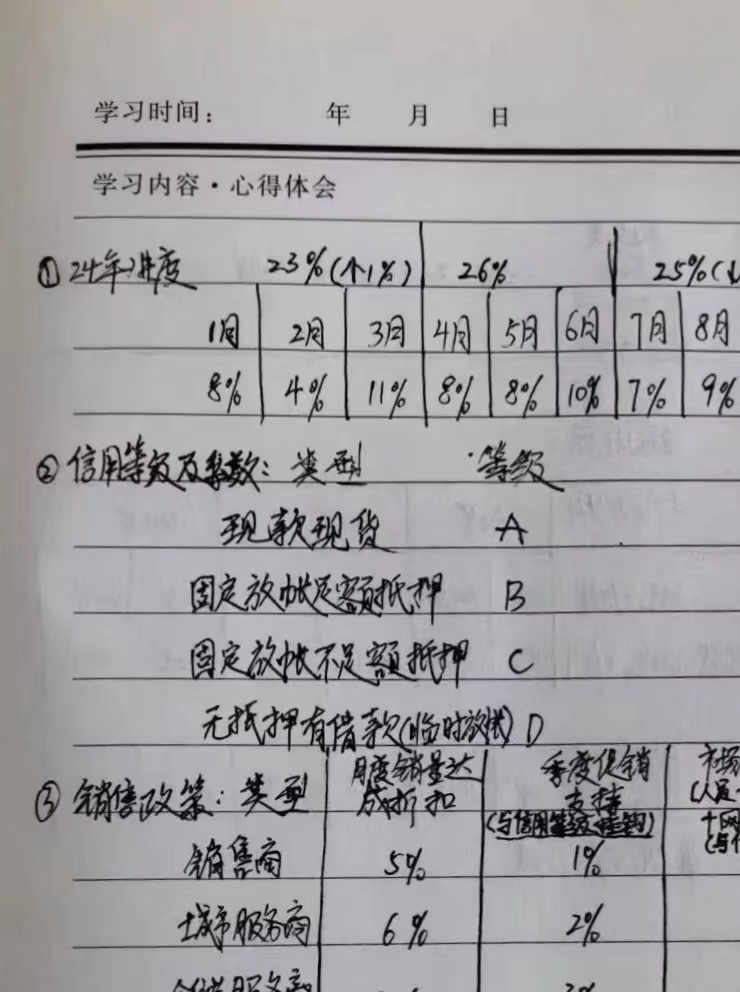 学习时间： 年 月 日
学习内容·心得体会
① 24年进度 23%(个1%) 26% 25%(↓
1月 2月 3月 4月 5月 6月 7月 8月
8% 4% 11% 8% 8% 10% 7% 9%
② 信用等级及系数：类型 等级
现款现货 A
固定放帐足额抵押 B
固定放帐不足额抵押 C
无抵押有借款(临时放帐) D
③ 销售政策：类型 月度销量达成折扣 季度促销支持(与信用等级挂钩) 市场
销售商 5% 1%
城市服务商 6% 2%